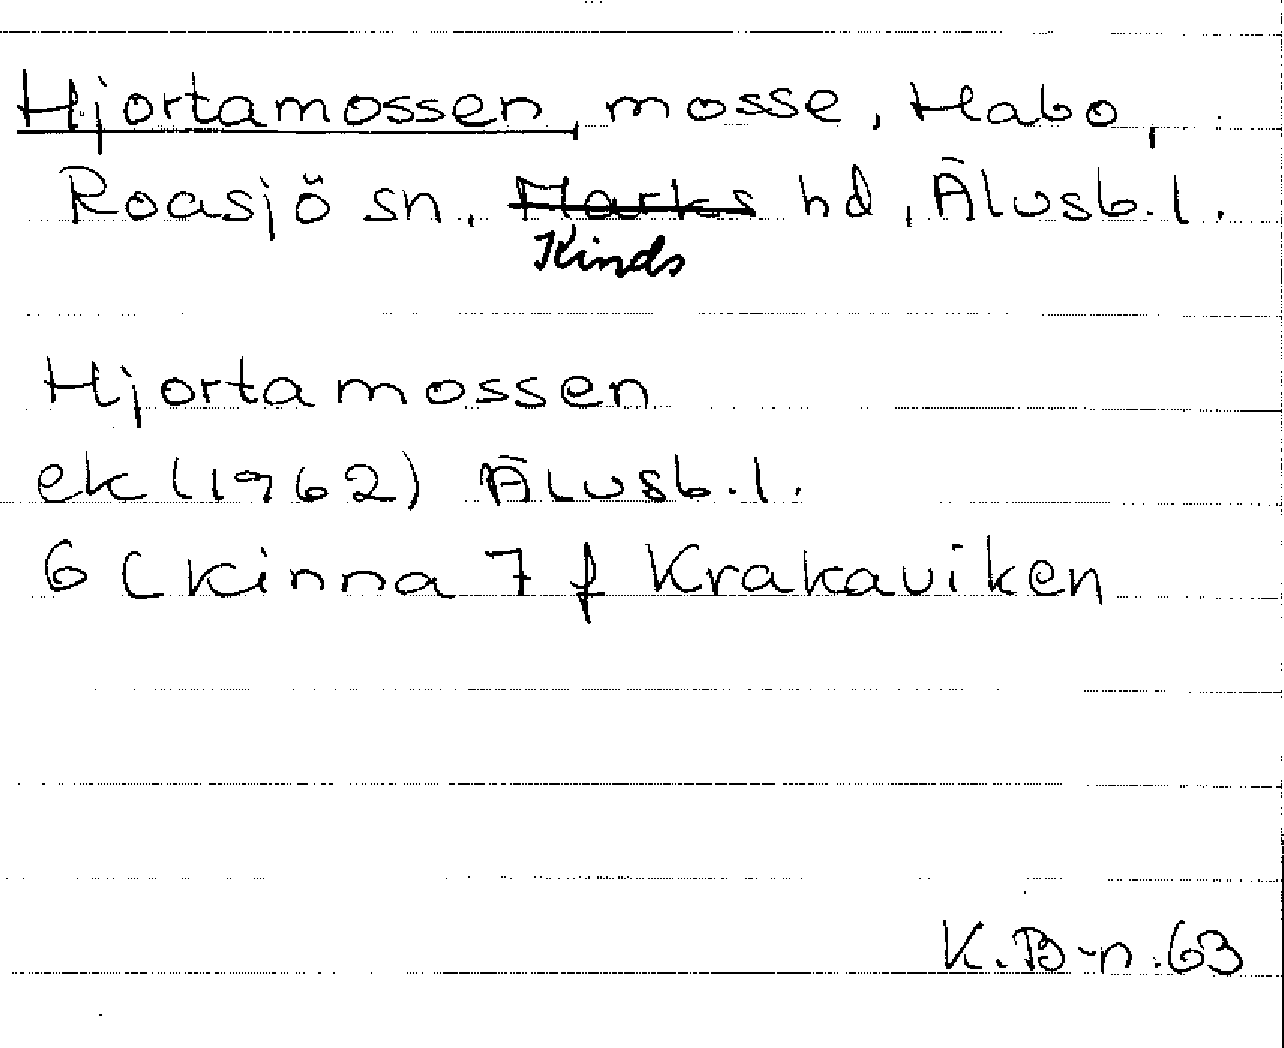 Hjortamossen, mosse, Habo,
Roasjö sn, Marks hd, Älvsb. l.
Kinds
Hjortamossen
ek (1962) Älvsb. l.
6 (Kinna 7 f Krakaviken
K.B-n. 63